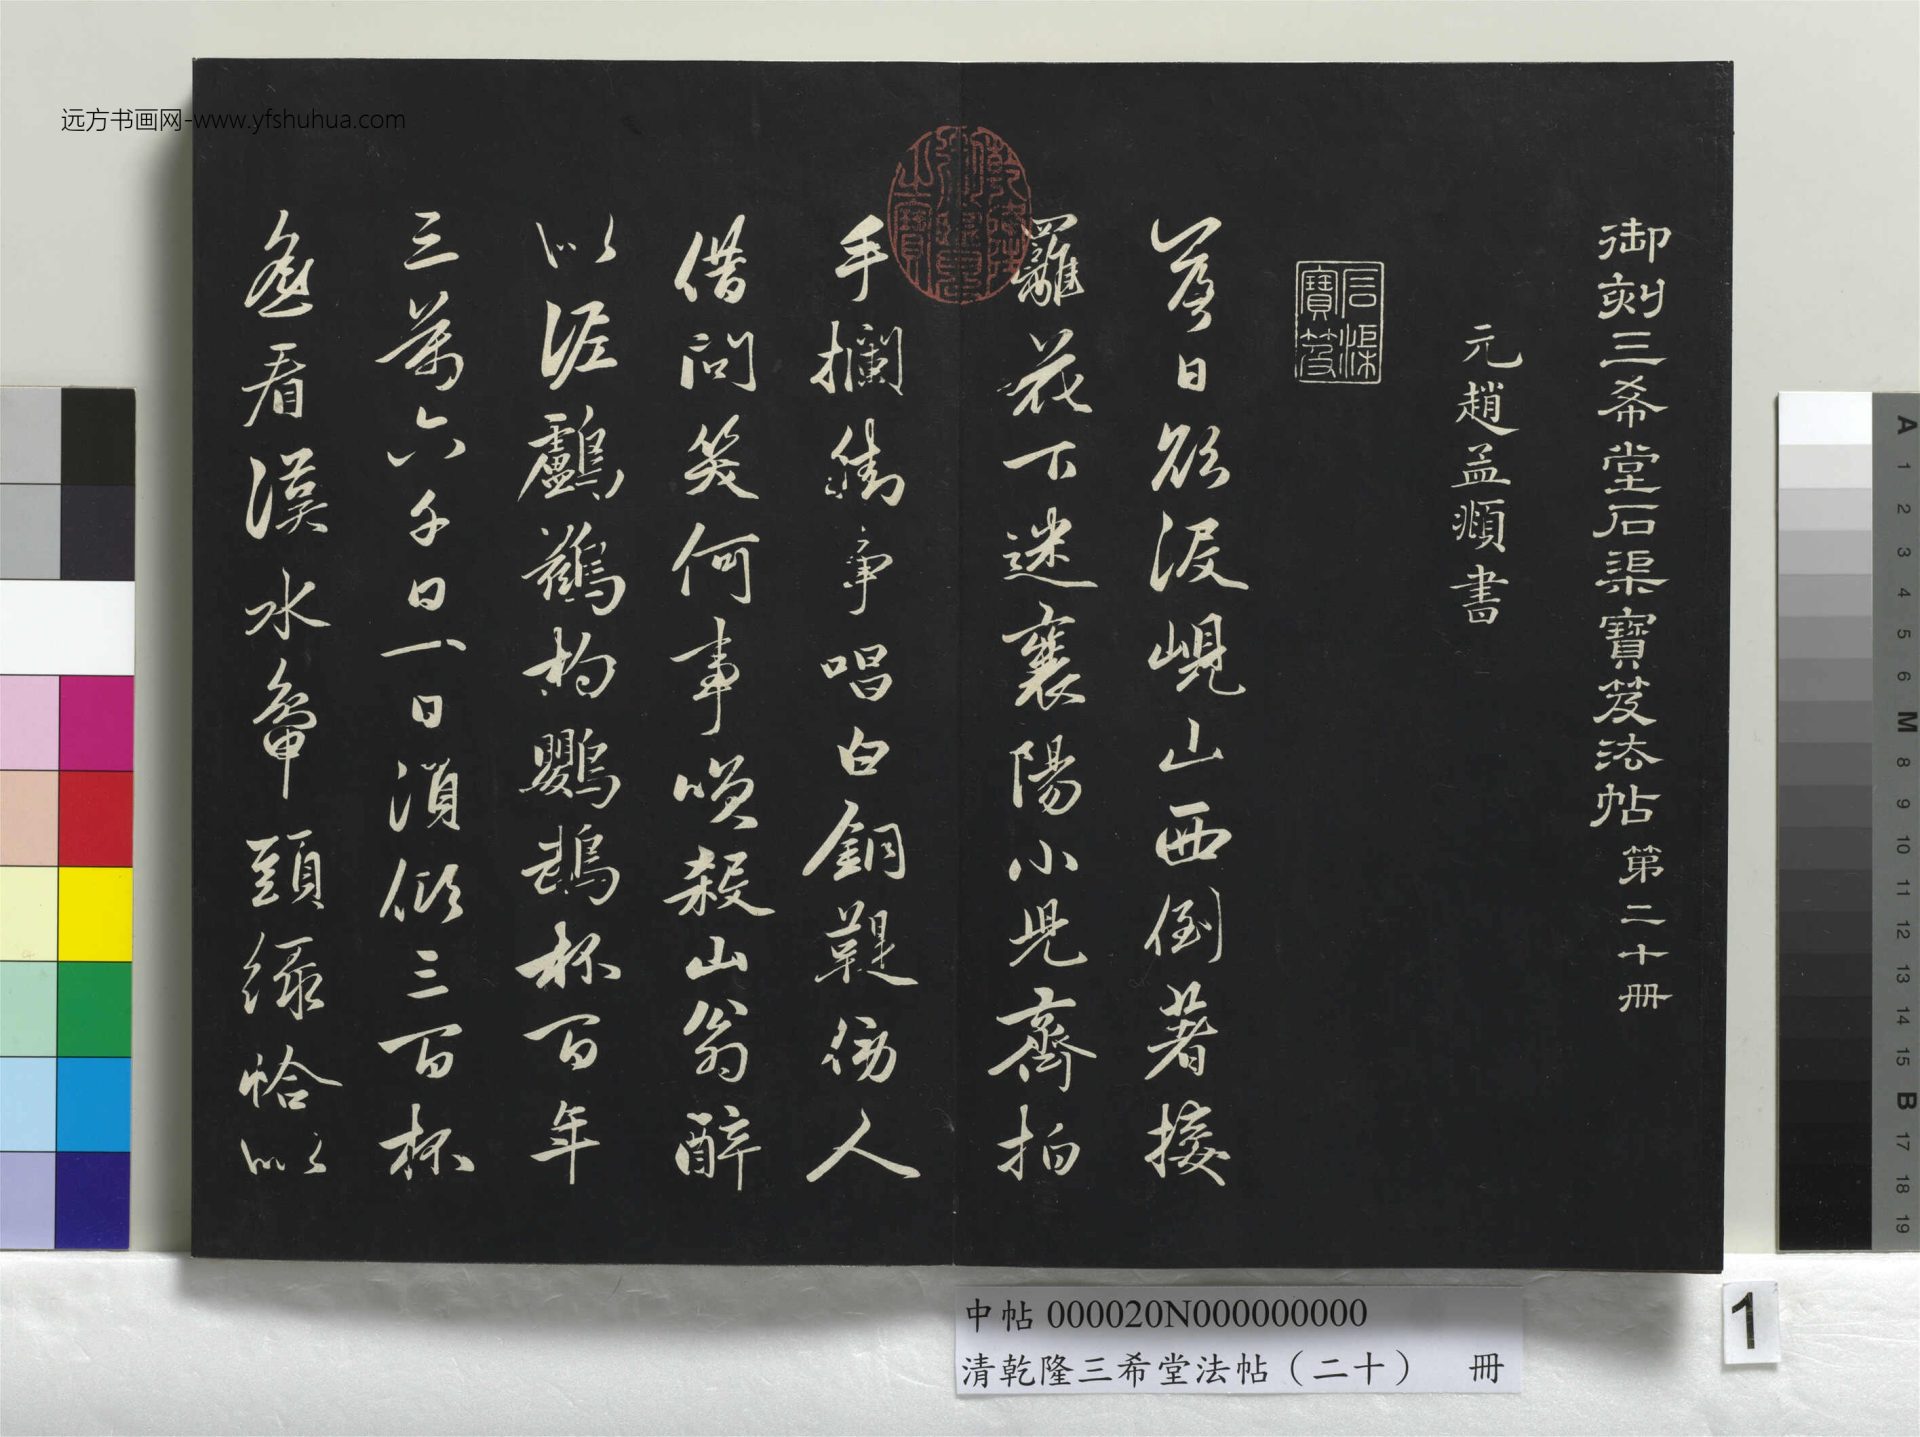 远方书画网-www.yfshuhua.com
御刻三希堂石渠寶笈法帖 第二十冊
元趙孟頫書
石渠寶笈
落日欲沒峴山西倒著接
䍦花下迷襄陽小兒齊拍
手攔街爭唱白銅鞮傍人
借問笑何事咲殺山翁醉
似泥鸕鷀杓鸚鵡杯百年
三萬六千日一日須傾三百杯
遙看漢水鴨頭綠恰似
乾隆御覽之寶
中帖 000020N000000000
清乾隆三希堂法帖（二十） 冊
1
A 1 2 3 4 5 6 M 8 9 10 11 12 13 14 15 B 17 18 19